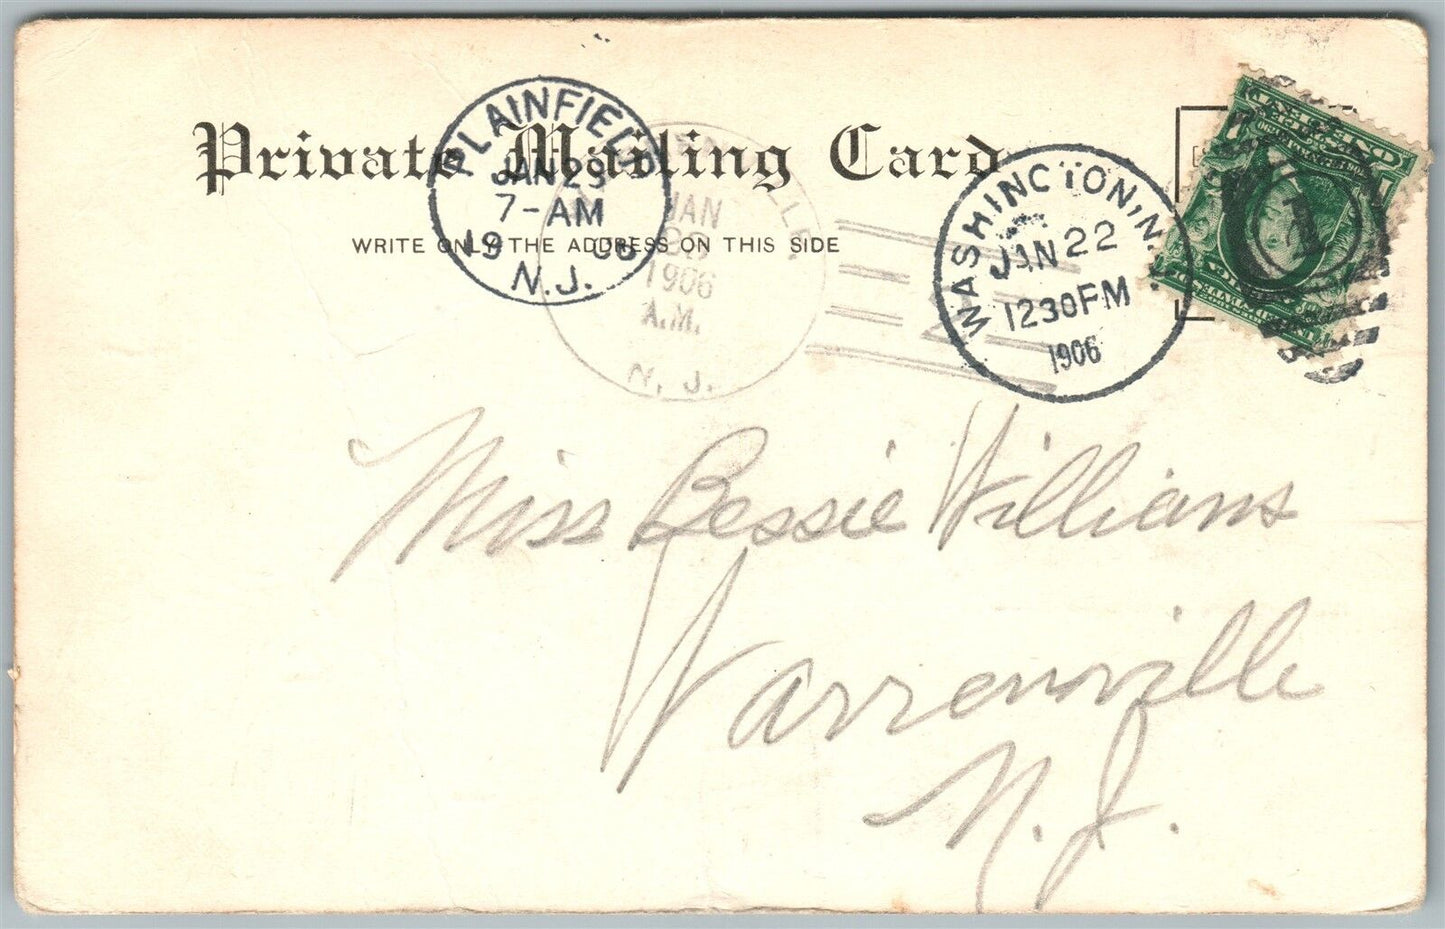 Private Mailing Card
WRITE ONLY THE ADDRESS ON THIS SIDE
PLAINFIELD
JAN 29
7-AM
1906
N.J.
JAN
1906
A.M.
N. J.
WASHINGTON, N.J.
JAN 22
1230PM
1906
1
Miss Bessie Williams
Warrenville
N. J.